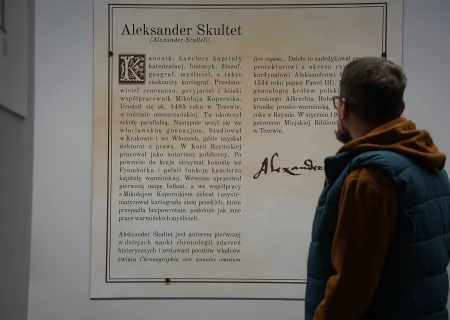 Aleksander Skultet
(Alexander Sculteti)
Kanonik, kanclerz kapituły
katedralnej, historyk, filozof,
geograf, myśliciel, a także
znakomity kartograf. Przedsta-
wiciel renesansu, przyjaciel i bliski
współpracownik Mikołaja Kopernika.
Urodził się ok. 1485 roku w Tczewie,
w rodzinie mieszczańskiej. Tu ukończył
szkołę parafialną. Następnie uczył się we
włocławskim gimnazjum. Studiował
w Krakowie i we Włoszech, gdzie uzyskał
doktorat z prawa. W Kurii Rzymskiej
pracował jako notariusz publiczny. Po
powrocie do kraju otrzymał kanonię we
Fromborku i pełnił funkcję kanclerza
kapituły warmińskiej. Wówczas opracował
pierwszą mapę Inflant, a we współpracy
z Mikołajem Kopernikiem zebrał i usyste-
matyzował kartografię ziem pruskich, która
przepadła bezpowrotnie, podobnie jak inne
prace warmińskich myślicieli.
Aleksander Skultet jest autorem pierwszej
w dziejach nauki chronologii zdarzeń
historycznych i zestawień pocztów władców
świata Chronographia sive annales omnium
fere regum... Dzieło to zadedykował
protektorowi z okresu
kardynałowi Aleksandrowi
1534 roku papież Paweł III).
genealogię królów
pruskiego Albrechta
kronikę prusko-warmińską,
roku w Rzymie. W styczniu
patronem Miejskiej
w Tczewie.